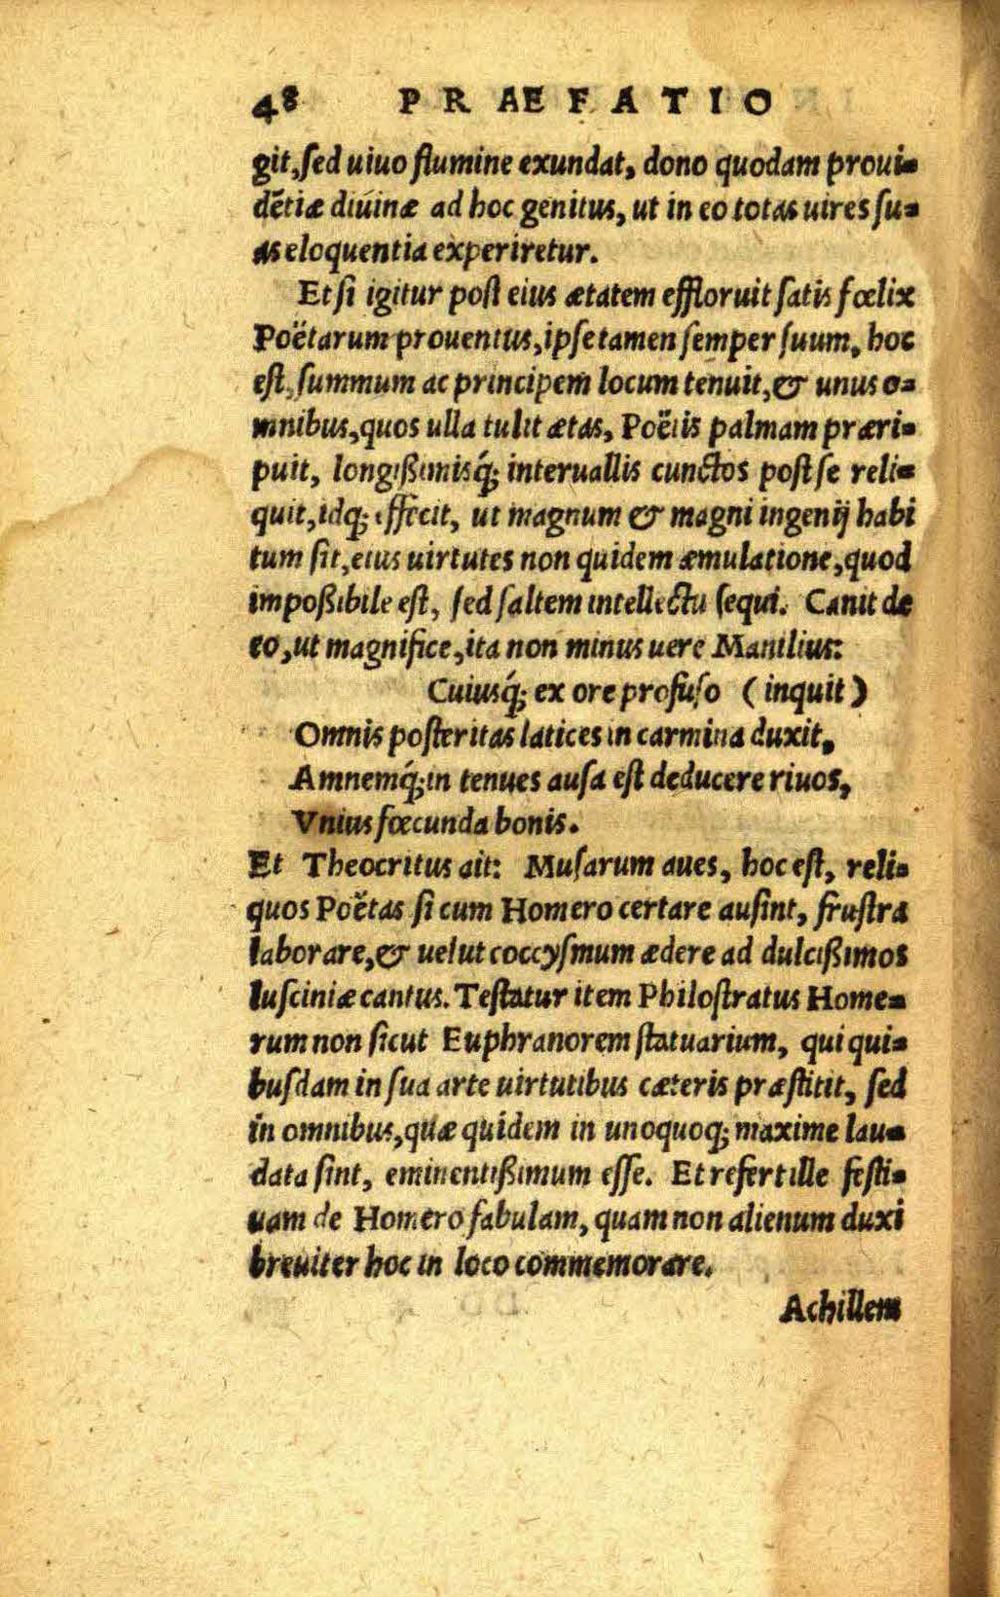 48 PRAEFATIO
git, sed uiuo flumine exundat, dono quodam proui-
dẽtiæ diuinæ ad hoc genitus, ut in eo totas uires su-
as eloquentia experiretur.
Etsi igitur post eius ætatem effloruit satis fœlix
Poëtarum prouentus, ipse tamen semper suum, hoc
est, summum ac principem locum tenuit, & unus o-
mnibus, quos ulla tulit ætas, Poëtis palmam præri-
puit, longißimisq́; interuallis cunctos post se reli-
quit, idq; effecit, ut magnum & magni ingenij habi
tum sit, eius uirtutes non quidem æmulatione, quod
impoßibile est, sed saltem intellectu sequi. Canit de
eo, ut magnifice, ita non minus uere Manilius:
Cuiusq́; ex ore profuso (inquit)
Omnis posteritas latices in carmina duxit,
Amnemq́; in tenues ausa est deducere riuos,
Vnius fœcunda bonis.
Et Theocritus ait: Musarum aues, hoc est, reli-
quos Poëtas si cum Homero certare ausint, frustra
laborare, & uelut coccysmum ædere ad dulcißimos
lusciniæ cantus. Testatur item Philostratus Home-
rum non sicut Euphranorem statuarium, qui qui-
busdam in sua arte uirtutibus cæteris præstitit, sed
in omnibus, quæ quidem in unoquoq; maxime lau-
data sint, eminentißimum esse. Et refert ille festi-
uam de Homero fabulam, quam non alienum duxi
breuiter hoc in loco commemorare.
Achillem